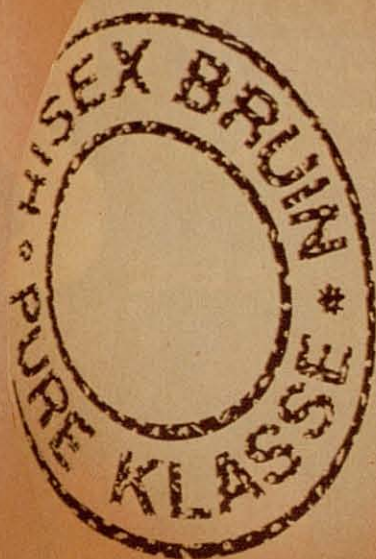 HISEX BRUIN *
PURE KLASSE